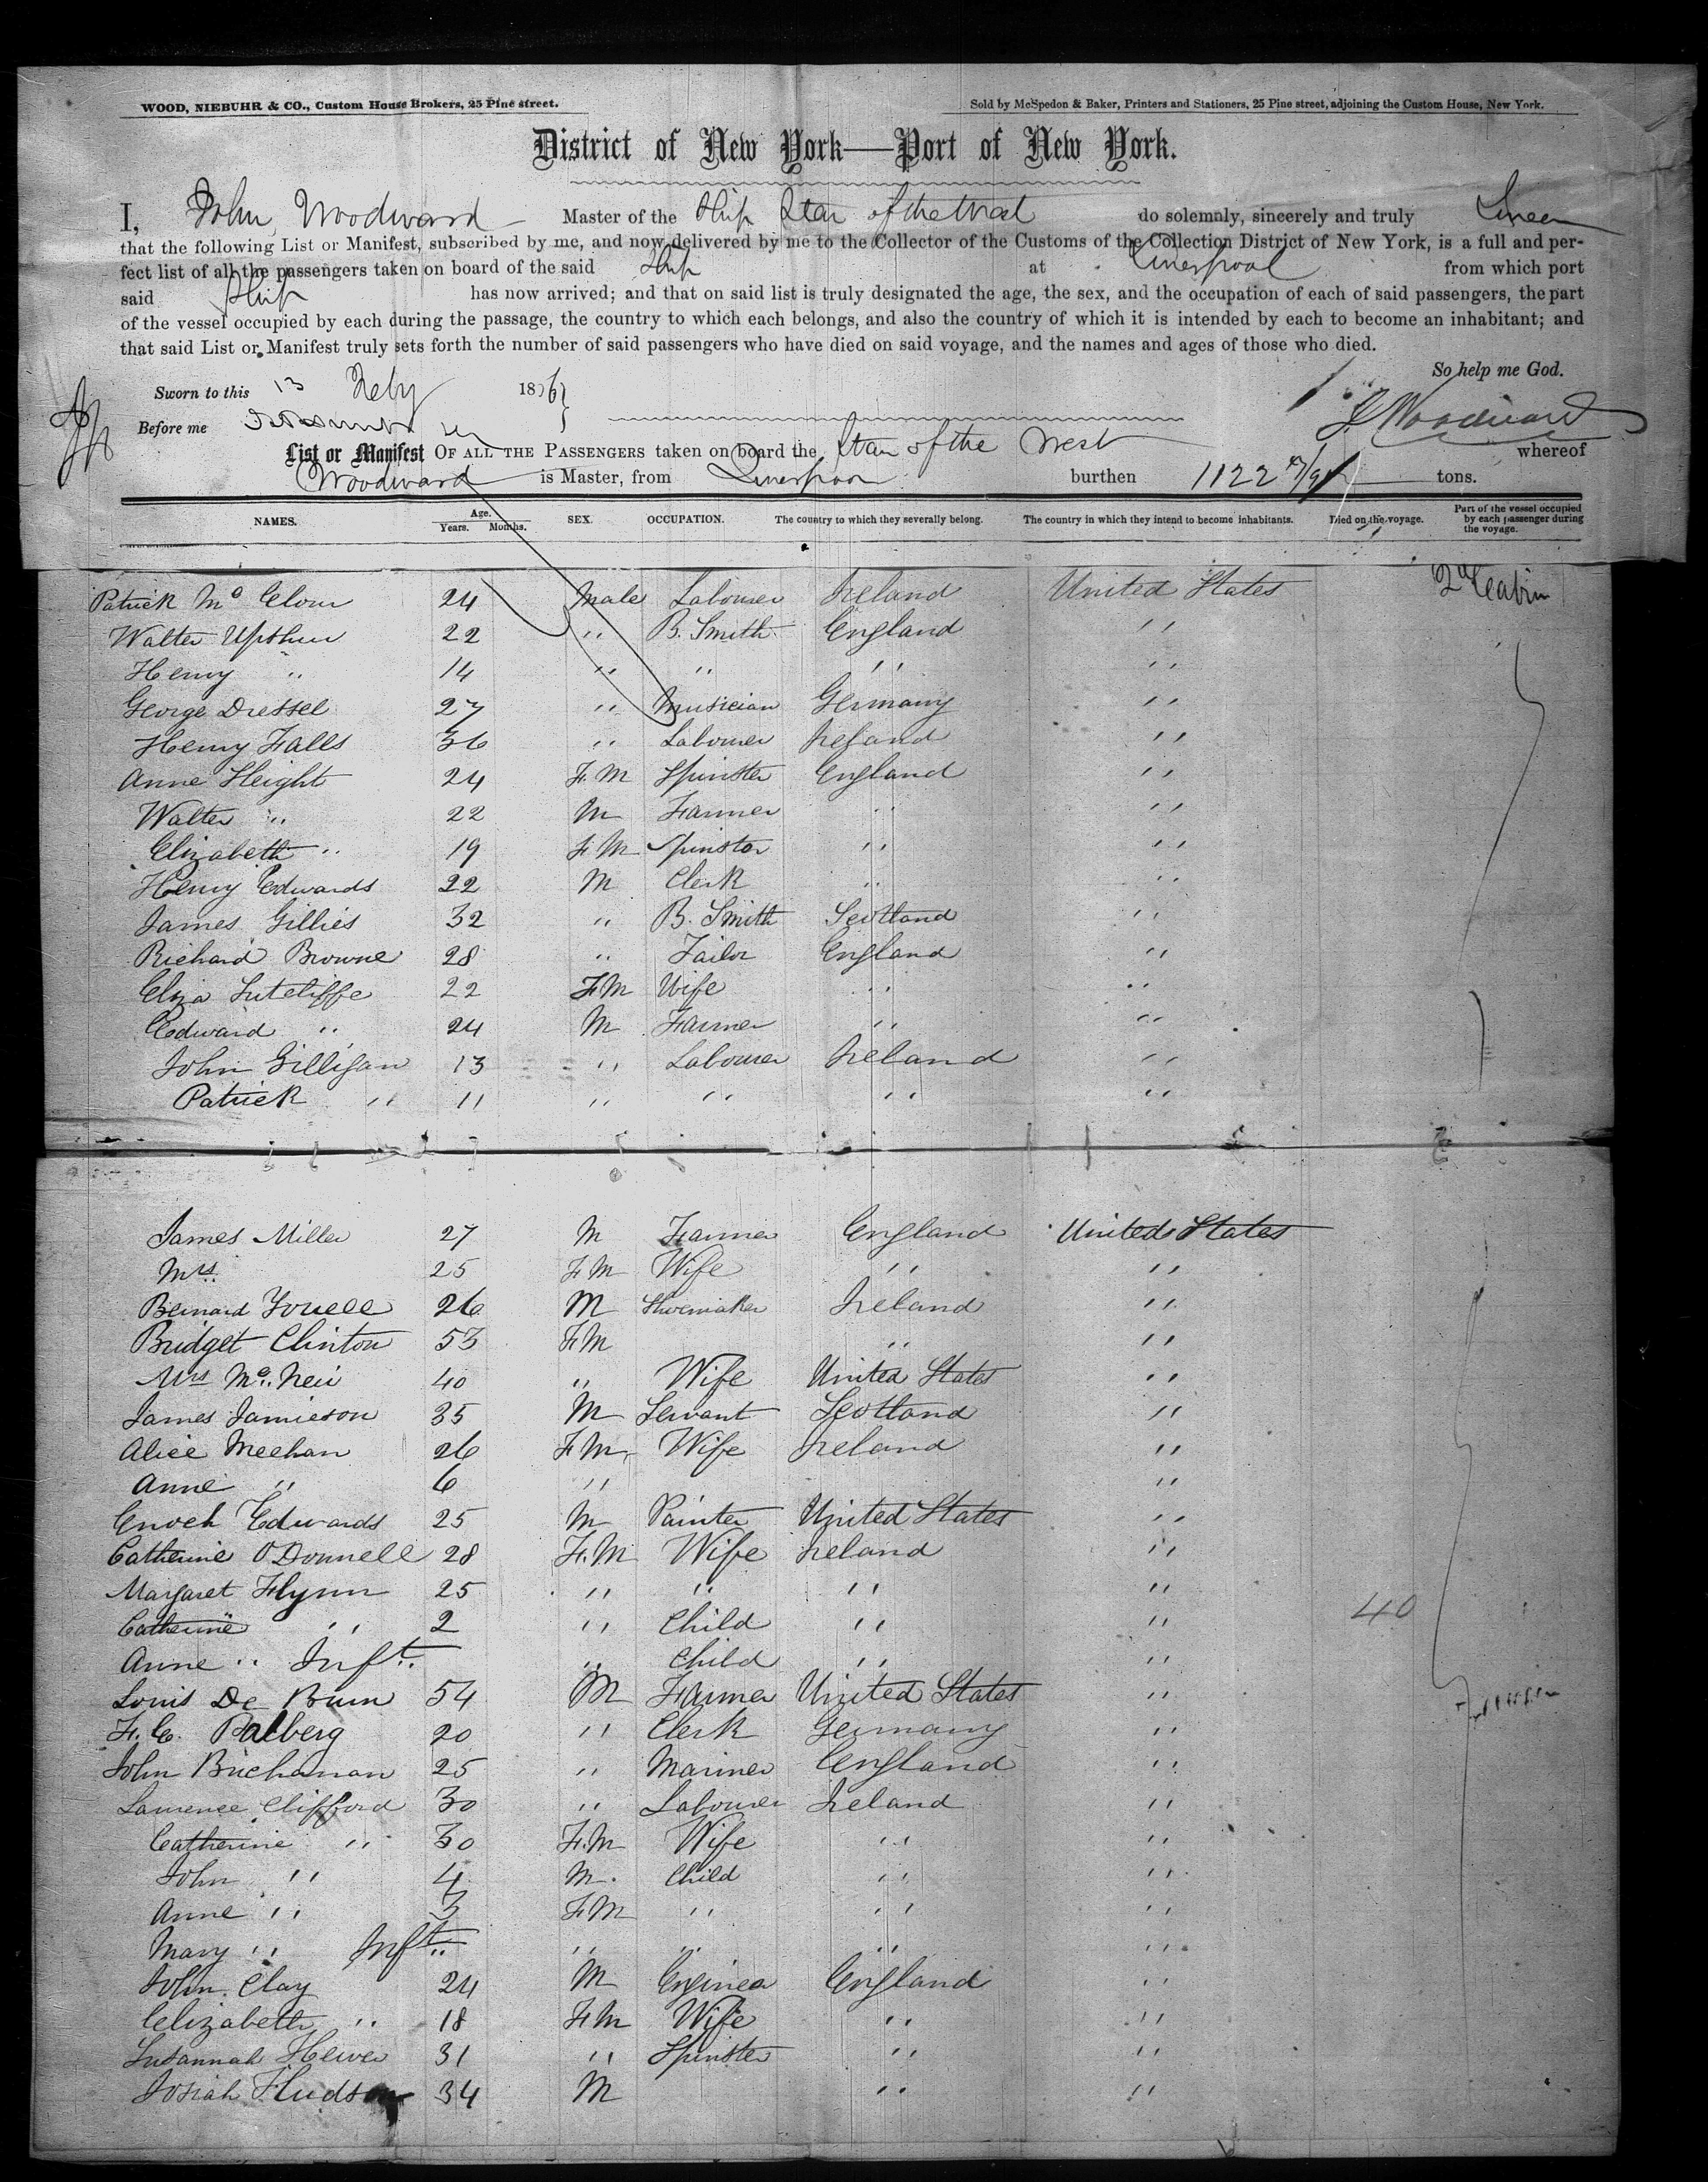 WOOD, NIEBUHR & CO., Custom House Brokers, 25 Pine street. Sold by McSpedon & Baker, Printers and Stationers, 25 Pine street, adjoining the Custom House, New York.
District of New York—Port of New York.
I, John Woodward Master of the Ship Star of the West do solemnly, sincerely and truly Swear
that the following List or Manifest, subscribed by me, and now delivered by me to the Collector of the Customs of the Collection District of New York, is a full and per-
fect list of all the passengers taken on board of the said Ship at Liverpool from which port
said Ship has now arrived; and that on said list is truly designated the age, the sex, and the occupation of each of said passengers, the part
of the vessel occupied by each during the passage, the country to which each belongs, and also the country of which it is intended by each to become an inhabitant; and
that said List or Manifest truly sets forth the number of said passengers who have died on said voyage, and the names and ages of those who died.
So help me God.
Sworn to this 13 Feby 1856
J Woodward
Before me
List or Manifest OF ALL THE PASSENGERS taken on board the Star of the West whereof
Woodward is Master, from Liverpool burthen 1122 tons.
NAMES. Age. Years. Months. SEX. OCCUPATION. The country to which they severally belong. The country in which they intend to become inhabitants. Died on the voyage. Part of the vessel occupied by each passenger during the voyage.
Patrick Mc 24 Male Labourer Ireland United States 2d Cabin
Walter Upshur 22 " B. Smith England "
Henry " 14 " " " "
George Dressel 27 " Musician Germany "
Henry Falls 36 " Labourer Ireland "
Anne Height 24 F M Spinster England "
Walter " 22 M Farmer " "
Elizabeth " 19 F M Spinster " "
Henry Edwards 22 M Clerk " "
James Gillies 32 " B. Smith Scotland "
Richard Browne 28 " Tailor England "
Eliza Sutcliffe 22 F M Wife " "
Edward " 24 M Farmer " "
John Gilligan 13 " Labourer Ireland "
Patrick " 11 " " " "
James Miller 27 M Farmer England United States
Mrs 25 F M Wife " "
Bernard 26 M Shoemaker Ireland "
Bridget Clinton 53 F M " "
Mrs Mc Neil 40 " Wife United States "
James Jamieson 35 M Servant Scotland "
Alice Meehan 26 F M Wife Ireland "
Anne " 6 " "
Enoch Edwards 25 M Painter United States "
Catherine O'Donnell 28 F. M Wife Ireland "
Margaret Flynn 25 " " " "
Catherine " 2 " Child " " 40
Anne " Inft. " Child " "
Louis De Bruin 54 M Farmer United States "
F. C. Palberg 20 " Clerk Germany "
John Buchanan 25 " Mariner England "
Laurence Clifford 30 " Labourer Ireland "
Catherine " 30 F. M Wife " "
John " 4 M. Child " "
Anne " 3 F M " " "
Mary " Inft. " " " "
John Clay 24 M Engineer England "
Elizabeth " 18 F M Wife " "
Susannah Hewer 31 " Spinster " "
Josiah Hudson 34 M " "